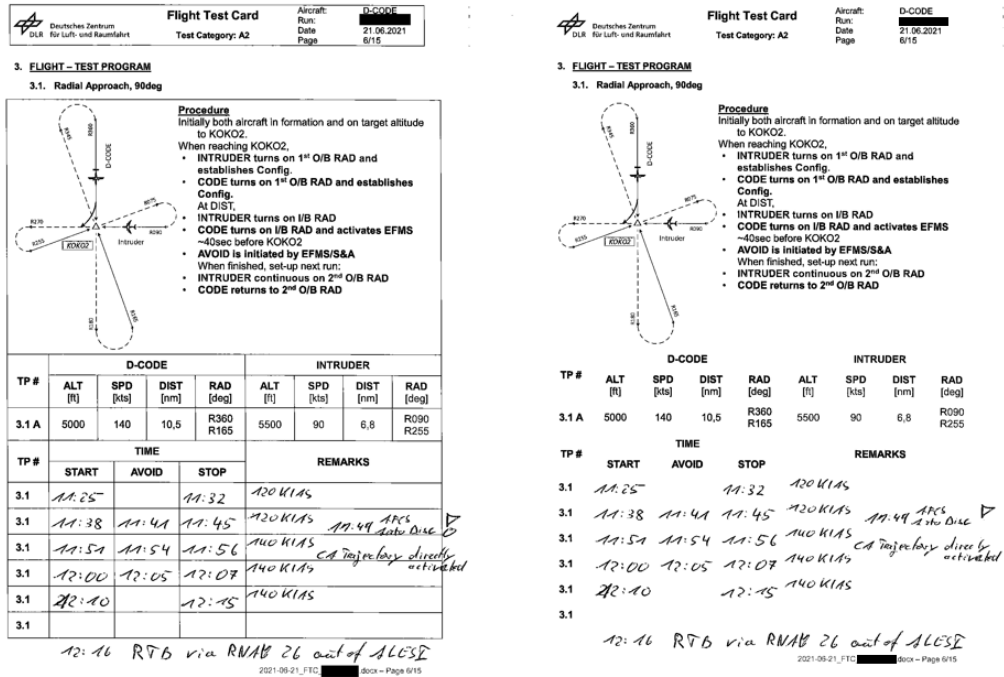 Deutsches Zentrum
DLR für Luft- und Raumfahrt
Flight Test Card
Test Category: A2
Aircraft: D-CODE
Run:
Date 21.06.2021
Page 6/15
3. FLIGHT – TEST PROGRAM
3.1. Radial Approach, 90deg
R345
R360
D-CODE
R075
R090
R270
R255
KOKO2
Intruder
R180
R165
Procedure
Initially both aircraft in formation and on target altitude
to KOKO2.
When reaching KOKO2,
• INTRUDER turns on 1st O/B RAD and
establishes Config.
• CODE turns on 1st O/B RAD and establishes
Config.
At DIST,
• INTRUDER turns on I/B RAD
• CODE turns on I/B RAD and activates EFMS
~40sec before KOKO2
• AVOID is initiated by EFMS/S&A
When finished, set-up next run:
• INTRUDER continuous on 2nd O/B RAD
• CODE returns to 2nd O/B RAD
D-CODE INTRUDER
TP # ALT SPD DIST RAD ALT SPD DIST RAD
[ft] [kts] [nm] [deg] [ft] [kts] [nm] [deg]
3.1 A 5000 140 10,5 R360 5500 90 6,8 R090
R165 R255
TP # TIME REMARKS
START AVOID STOP
3.1 11:25 11:32 120 KIAS
3.1 11:38 11:41 11:45 120 KIAS 11:49 APCS Auto Disc
3.1 11:51 11:54 11:56 140 KIAS CA Trajectory directly activated
3.1 12:00 12:05 12:07 140 KIAS
3.1 12:10 12:15 140 KIAS
3.1
12:16 RTB via RNAV 26 out of ALESI
2021-06-21_FTC_ .docx – Page 6/15
Deutsches Zentrum
DLR für Luft- und Raumfahrt
Flight Test Card
Test Category: A2
Aircraft: D-CODE
Run:
Date 21.06.2021
Page 6/15
3. FLIGHT – TEST PROGRAM
3.1. Radial Approach, 90deg
R345
R360
D-CODE
R075
R090
R270
R255
KOKO2
Intruder
R180
R165
Procedure
Initially both aircraft in formation and on target altitude
to KOKO2.
When reaching KOKO2,
• INTRUDER turns on 1st O/B RAD and
establishes Config.
• CODE turns on 1st O/B RAD and establishes
Config.
At DIST,
• INTRUDER turns on I/B RAD
• CODE turns on I/B RAD and activates EFMS
~40sec before KOKO2
• AVOID is initiated by EFMS/S&A
When finished, set-up next run:
• INTRUDER continuous on 2nd O/B RAD
• CODE returns to 2nd O/B RAD
D-CODE INTRUDER
TP # ALT SPD DIST RAD ALT SPD DIST RAD
[ft] [kts] [nm] [deg] [ft] [kts] [nm] [deg]
3.1 A 5000 140 10,5 R360 5500 90 6,8 R090
R165 R255
TP # TIME REMARKS
START AVOID STOP
3.1 11:25 11:32 120 KIAS
3.1 11:38 11:41 11:45 120 KIAS 11:49 APCS Auto Disc
3.1 11:51 11:54 11:56 140 KIAS CA Trajectory directly activated
3.1 12:00 12:05 12:07 140 KIAS
3.1 12:10 12:15 140 KIAS
3.1
12:16 RTB via RNAV 26 out of ALESI
2021-06-21_FTC_ .docx – Page 6/15